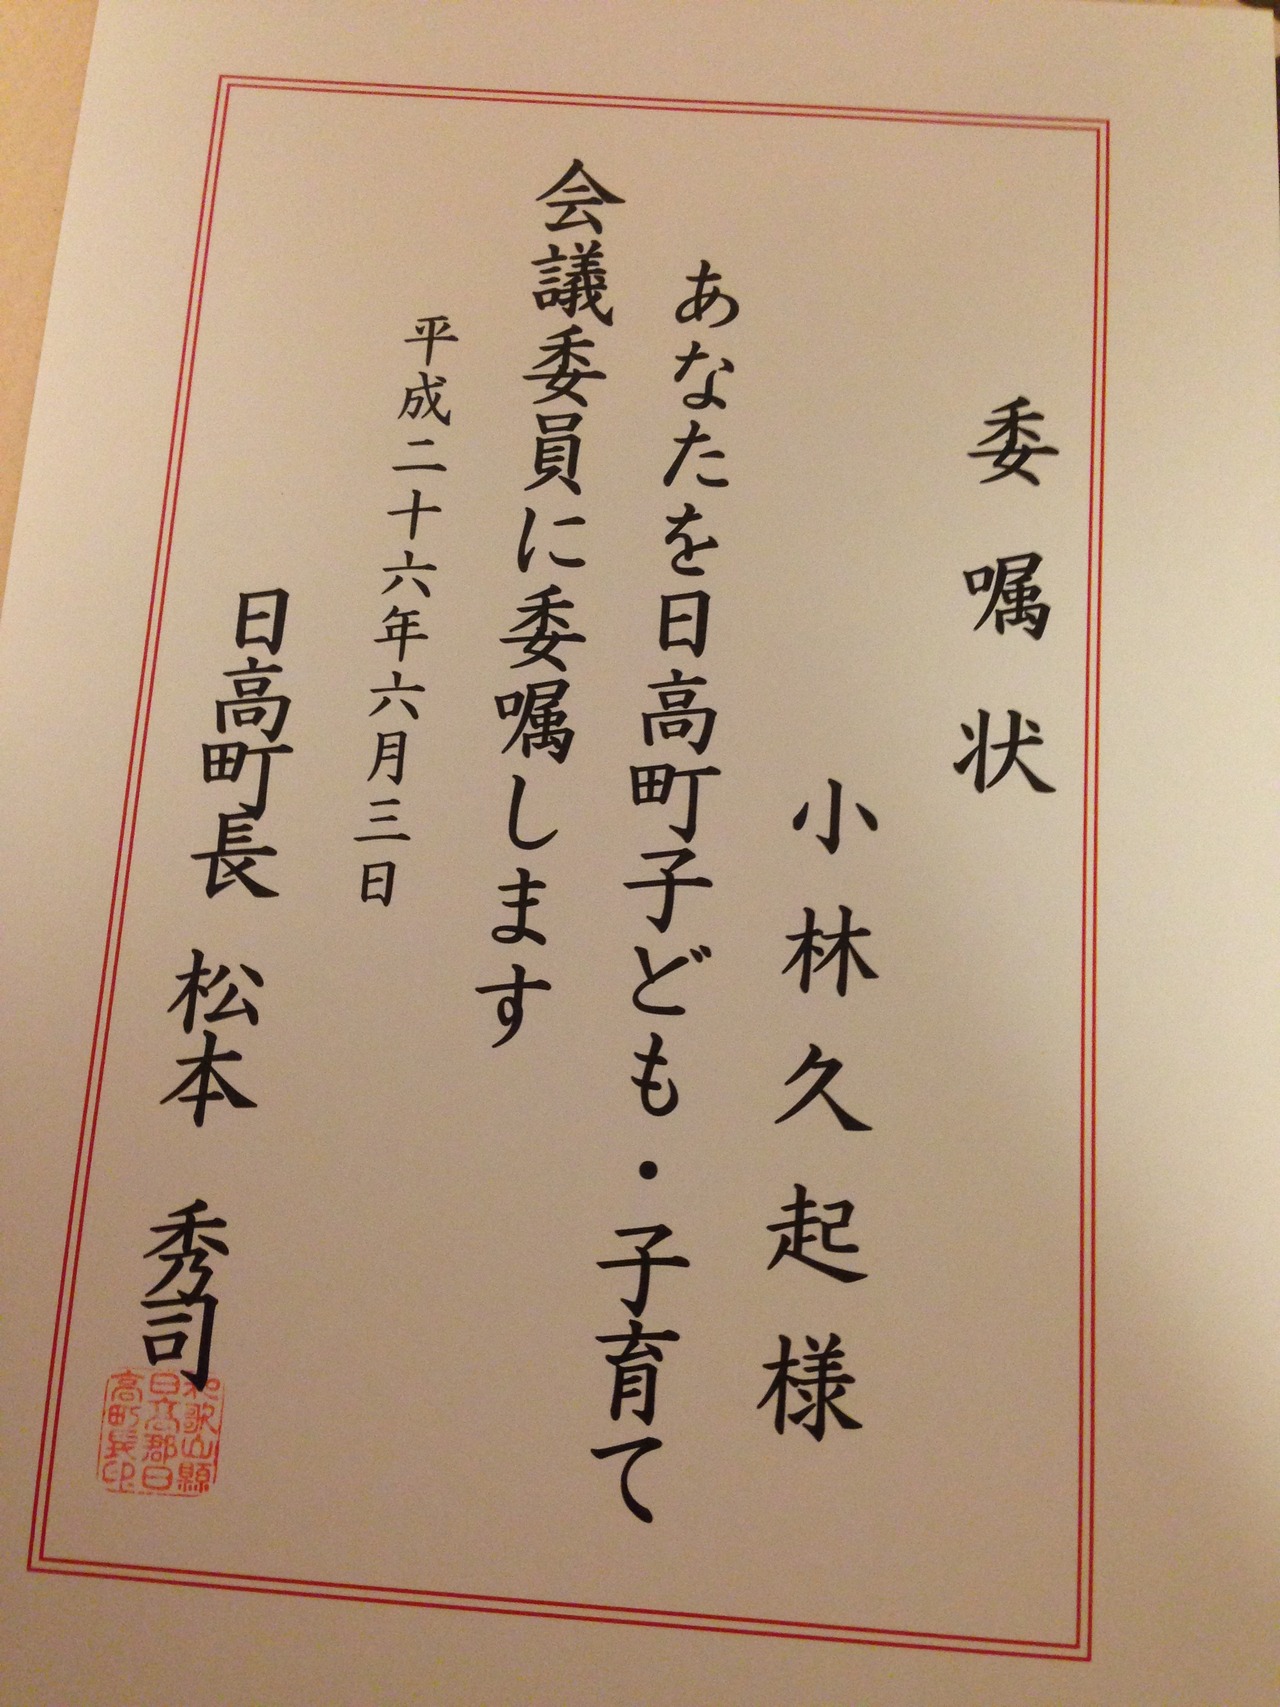 委嘱状
小林久起様
あなたを日高町子ども・子育て
会議委員に委嘱します
平成二十六年六月三日
日高町長 松本 秀司
和歌山縣
日高郡日
高町長印